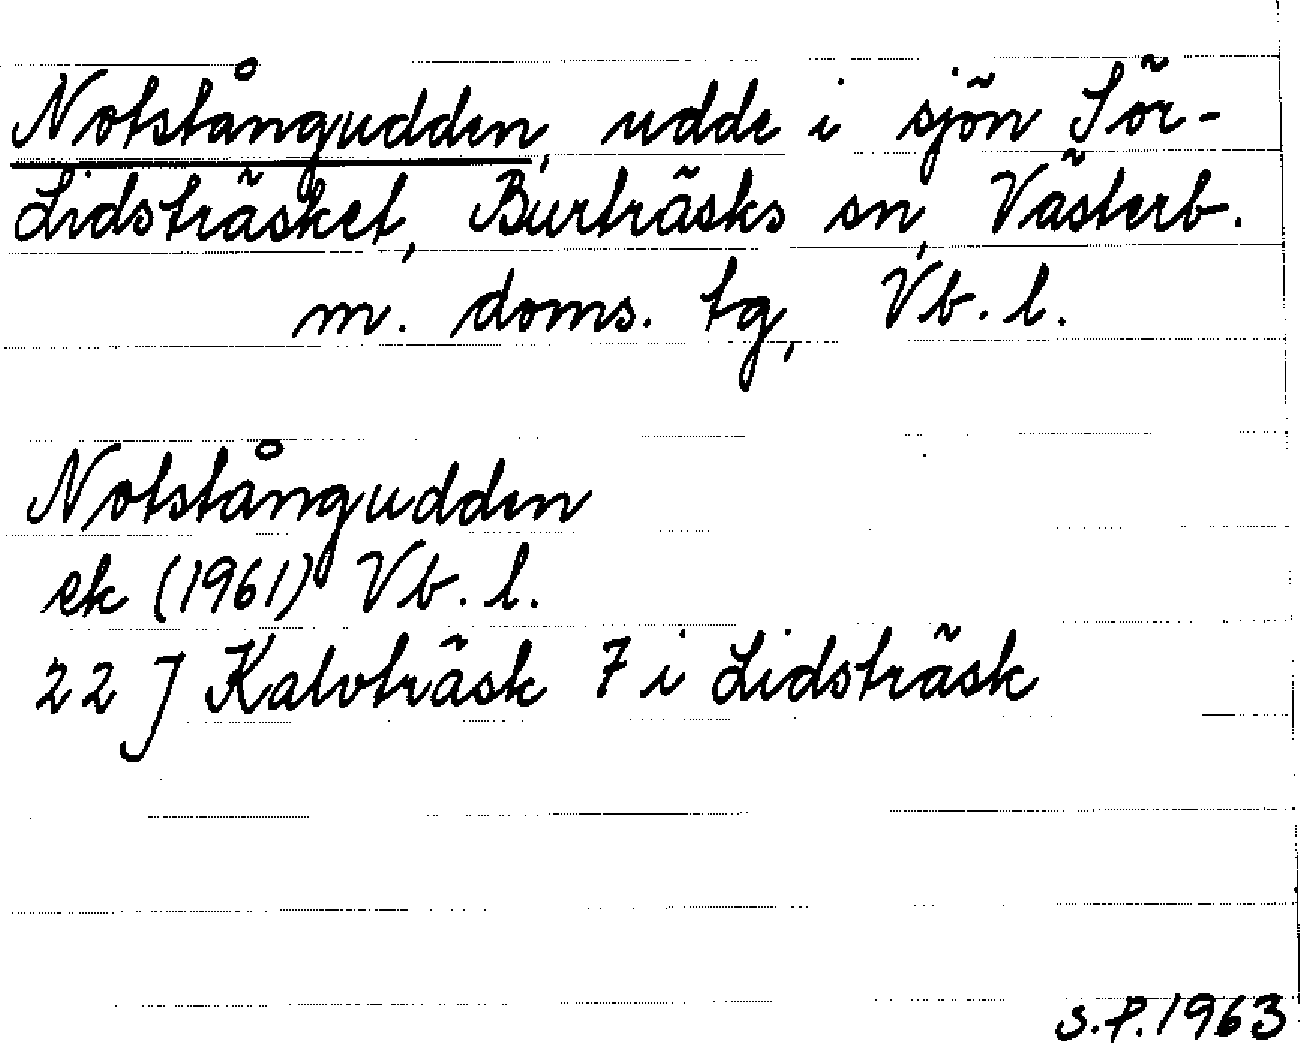 Notstångudden, udde i sjön Sör-
Lidsträsket, Burträsks sn, Västerb.
m. doms. tg, Vb. l.
Notstångudden
ek (1961) Vb. l.
22 J Kalvträsk 7 i Lidsträsk
S.P. 1963